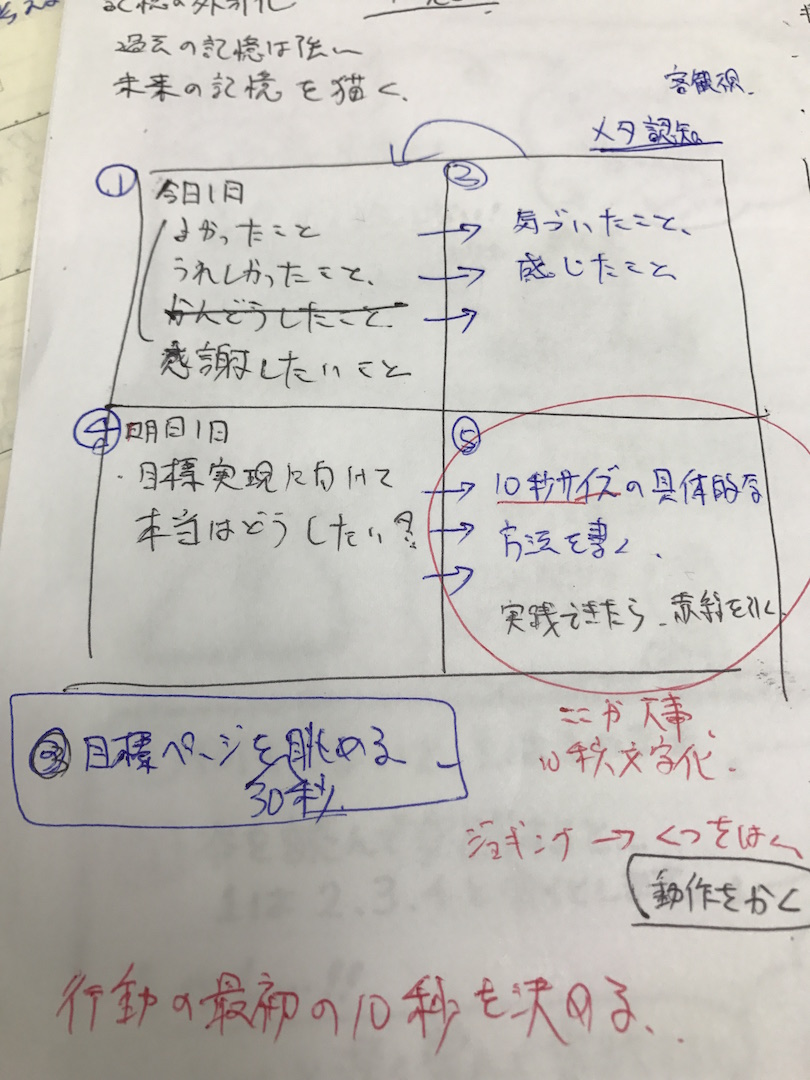 記憶の外部化
過去の記憶は強い
未来の記憶を描く、
客観視、
メタ認知。
①
今日1日
よかったこと
うれしかったこと、
かんどうしたこと、
感謝したいこと
→
→
→
②
気づいたこと、
感じたこと
④ 明日1日
・目標実現に向けて
本当はどうしたい?
→
→
→
⑤
10秒サイズの具体的な
方法を書く、
実践できたら、赤線を引く
③ 目標ページを眺める
30秒
ここが大事、
10秒文字化、
ジョギング → くつをはく、
動作をかく
行動の最初の10秒を決める、